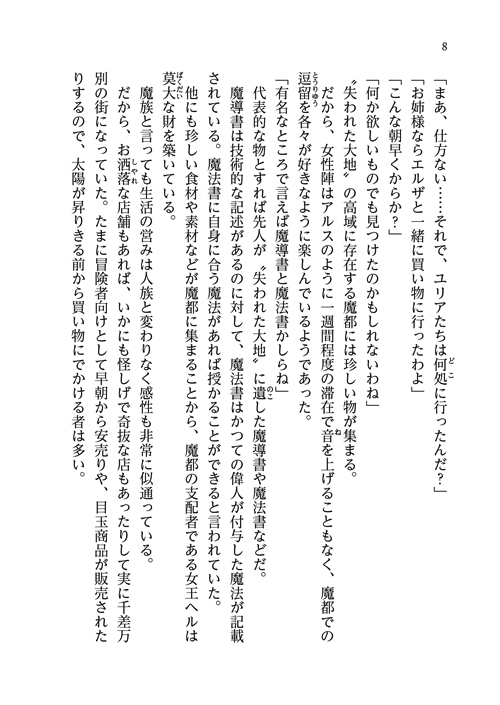 8
「まあ、仕方ない……それで、ユリアたちは何処に行ったんだ？」
「お姉様ならエルザと一緒に買い物に行ったわよ」
「こんな朝早くからか？」
「何か欲しいものでも見つけたのかもしれないわね」
〝失われた大地〟の高域に存在する魔都には珍しい物が集まる。
だから、女性陣はアルスのように一週間程度の滞在で音を上げることもなく、魔都での
逗留を各々が好きなように楽しんでいるようであった。
「有名なところで言えば魔導書と魔法書かしらね」
代表的な物とすれば先人が〝失われた大地〟に遺した魔導書や魔法書などだ。
魔導書は技術的な記述があるのに対して、魔法書はかつての偉人が付与した魔法が記載
されている。魔法書に自身に合う魔法があれば授かることができると言われていた。
他にも珍しい食材や素材などが魔都に集まることから、魔都の支配者である女王ヘルは
莫大な財を築いている。
魔族と言っても生活の営みは人族と変わりなく感性も非常に似通っている。
だから、お洒落な店舗もあれば、いかにも怪しげで奇抜な店もあったりして実に千差万
別の街になっていた。たまに冒険者向けとして早朝から安売りや、目玉商品が販売された
りするので、太陽が昇りきる前から買い物にでかける者は多い。